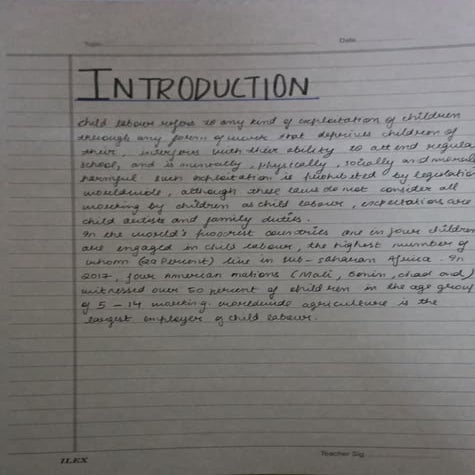 Topic
Date
INTRODUCTION
child labour refers to any kind of exploitation of children
through any form of work that deprives children of
their, interferes with their ability to attend regular
school, and is mentally, physically, socially and morally
harmful such exploitation is prohibited by legislation
worldwide, although these laws do not consider all
working by children as child labour, expectations are
child artists and family duties.
In the world's poorest countries one in four children
are engaged in child labour, the highest number of
whom (29 Percent) live in sub-saharan Africa. In
2017, four American nations (Mali, Benin, chad and)
witnessed over 50 percent of children in the age group
of 5 - 14 working. worldwide agriculture is the
largest employer of child labour.
ILEX
Teacher Sig.